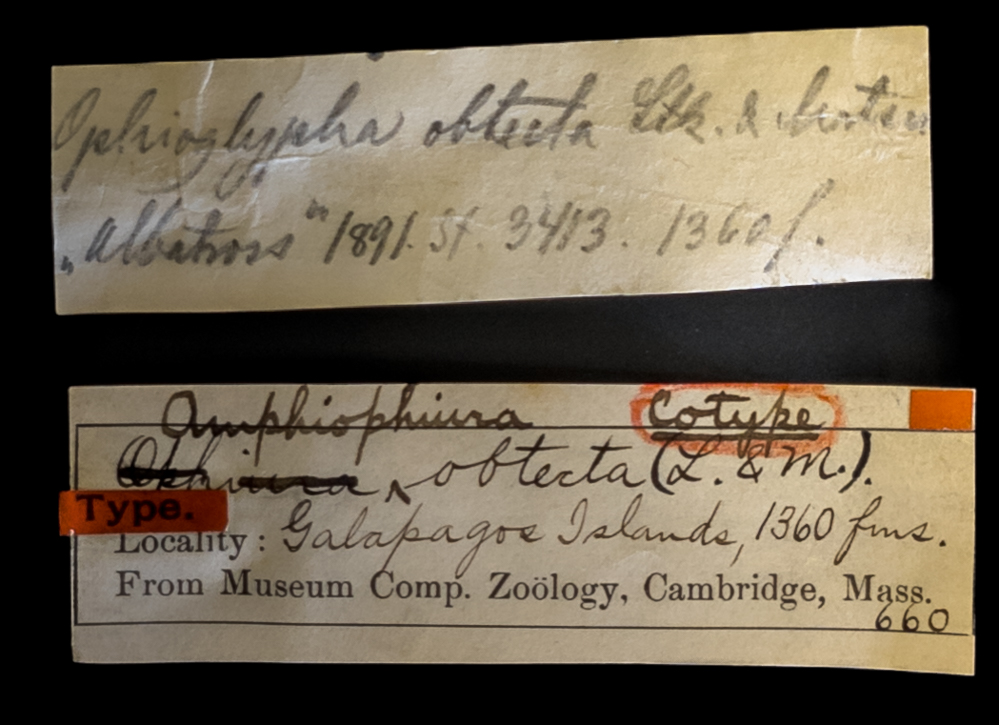 Ophioglypha obtecta Ltk. & Morten
„Albatross" 1891. St. 3413. 1360 f.
Amphiophiura Cotype
Ophiura ‸ obtecta (L. & M.).
Type.
Locality : Galapagos Islands, 1360 fms.
From Museum Comp. Zoölogy, Cambridge, Mass.
660